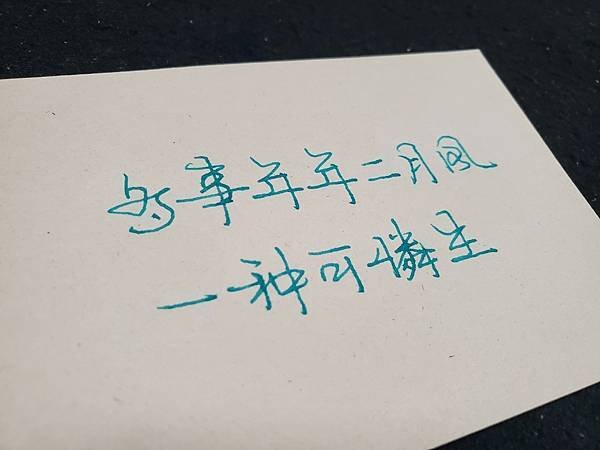 多事年年二月风
一种可憐生